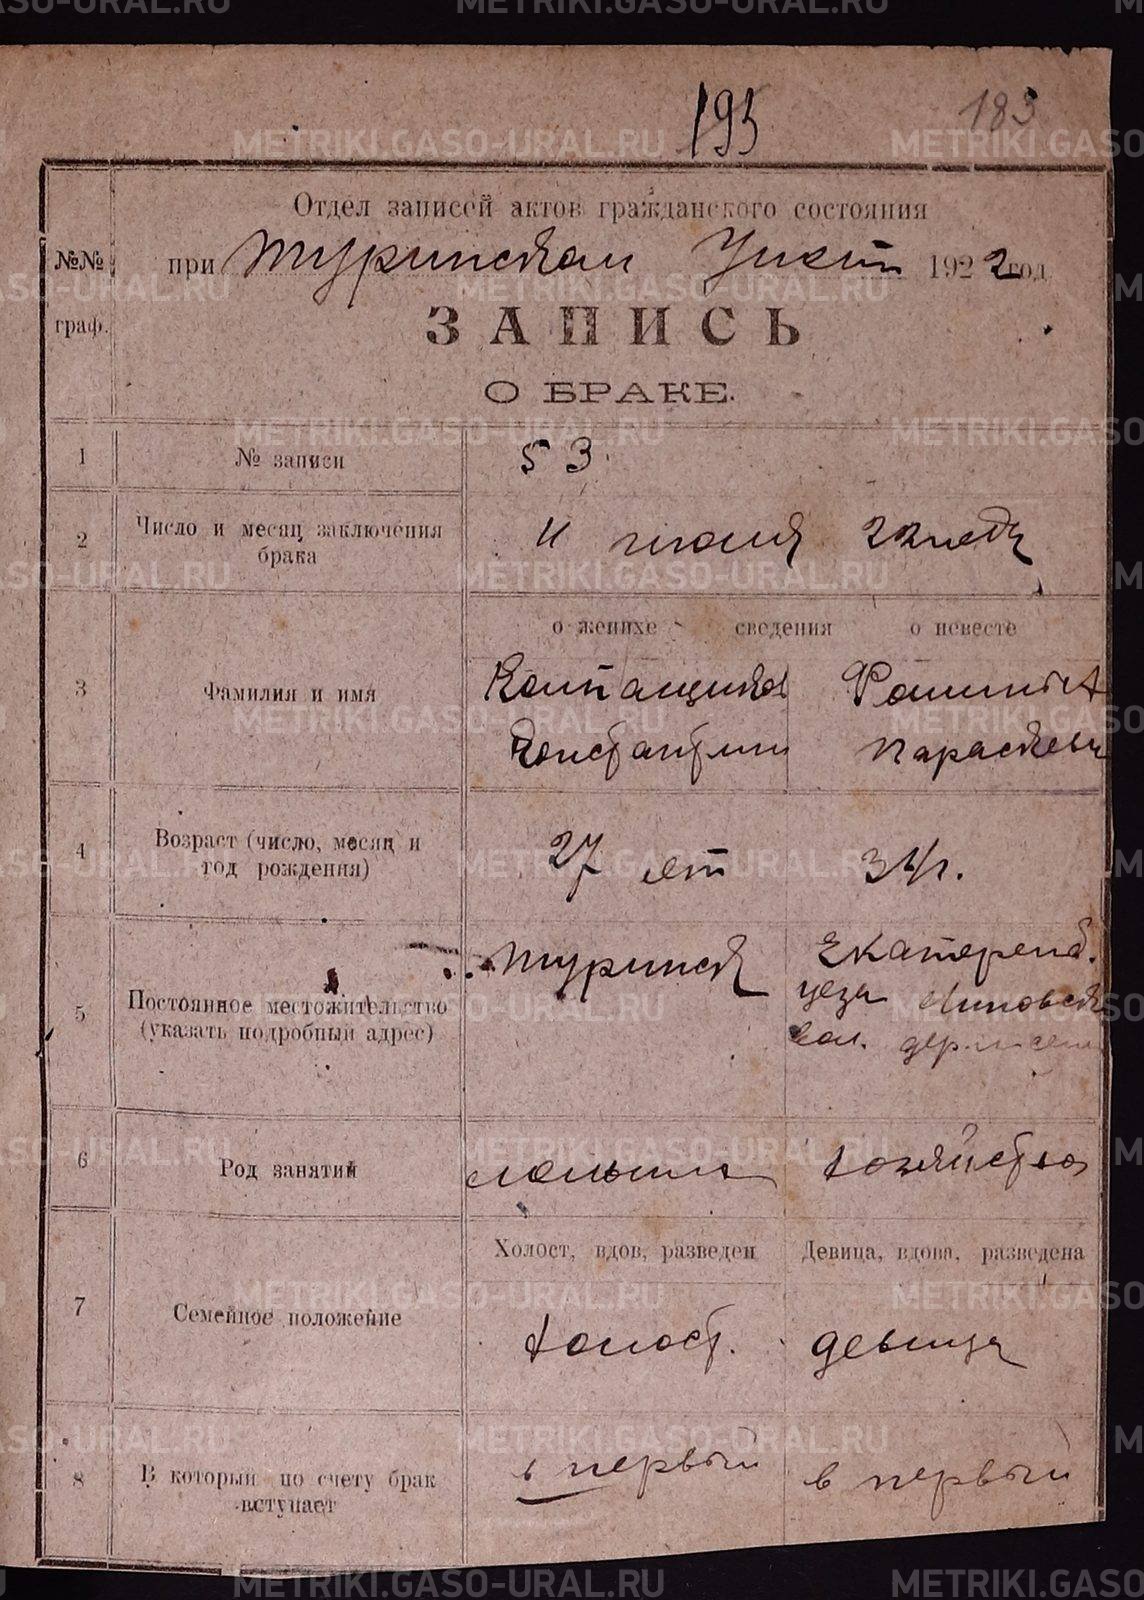 METRIKI.GASO-URAL.RU
193
183
Отдел записей актов гражданского состояния
№№ граф.
при Туринском Уисп 1922 год
ЗАПИСЬ
О БРАКЕ.
1 № записи 53
2 Число и месяц заключения брака 11 июля 22 года
о женихе сведения о невесте
3 Фамилия и имя
Константин Параскева
4 Возраст (число, месяц и год рождения) 27 лет 34 г.
5 Постоянное местожительство (указать подробный адрес)
г. Туринск
Екатеренб.
уезда
вол. дер.
6 Род занятий хозяйство
7 Семейное положение
Холост, вдов, разведен Девица, вдова, разведена
холост. девица
8 В который по счету брак вступает
в первый в первый